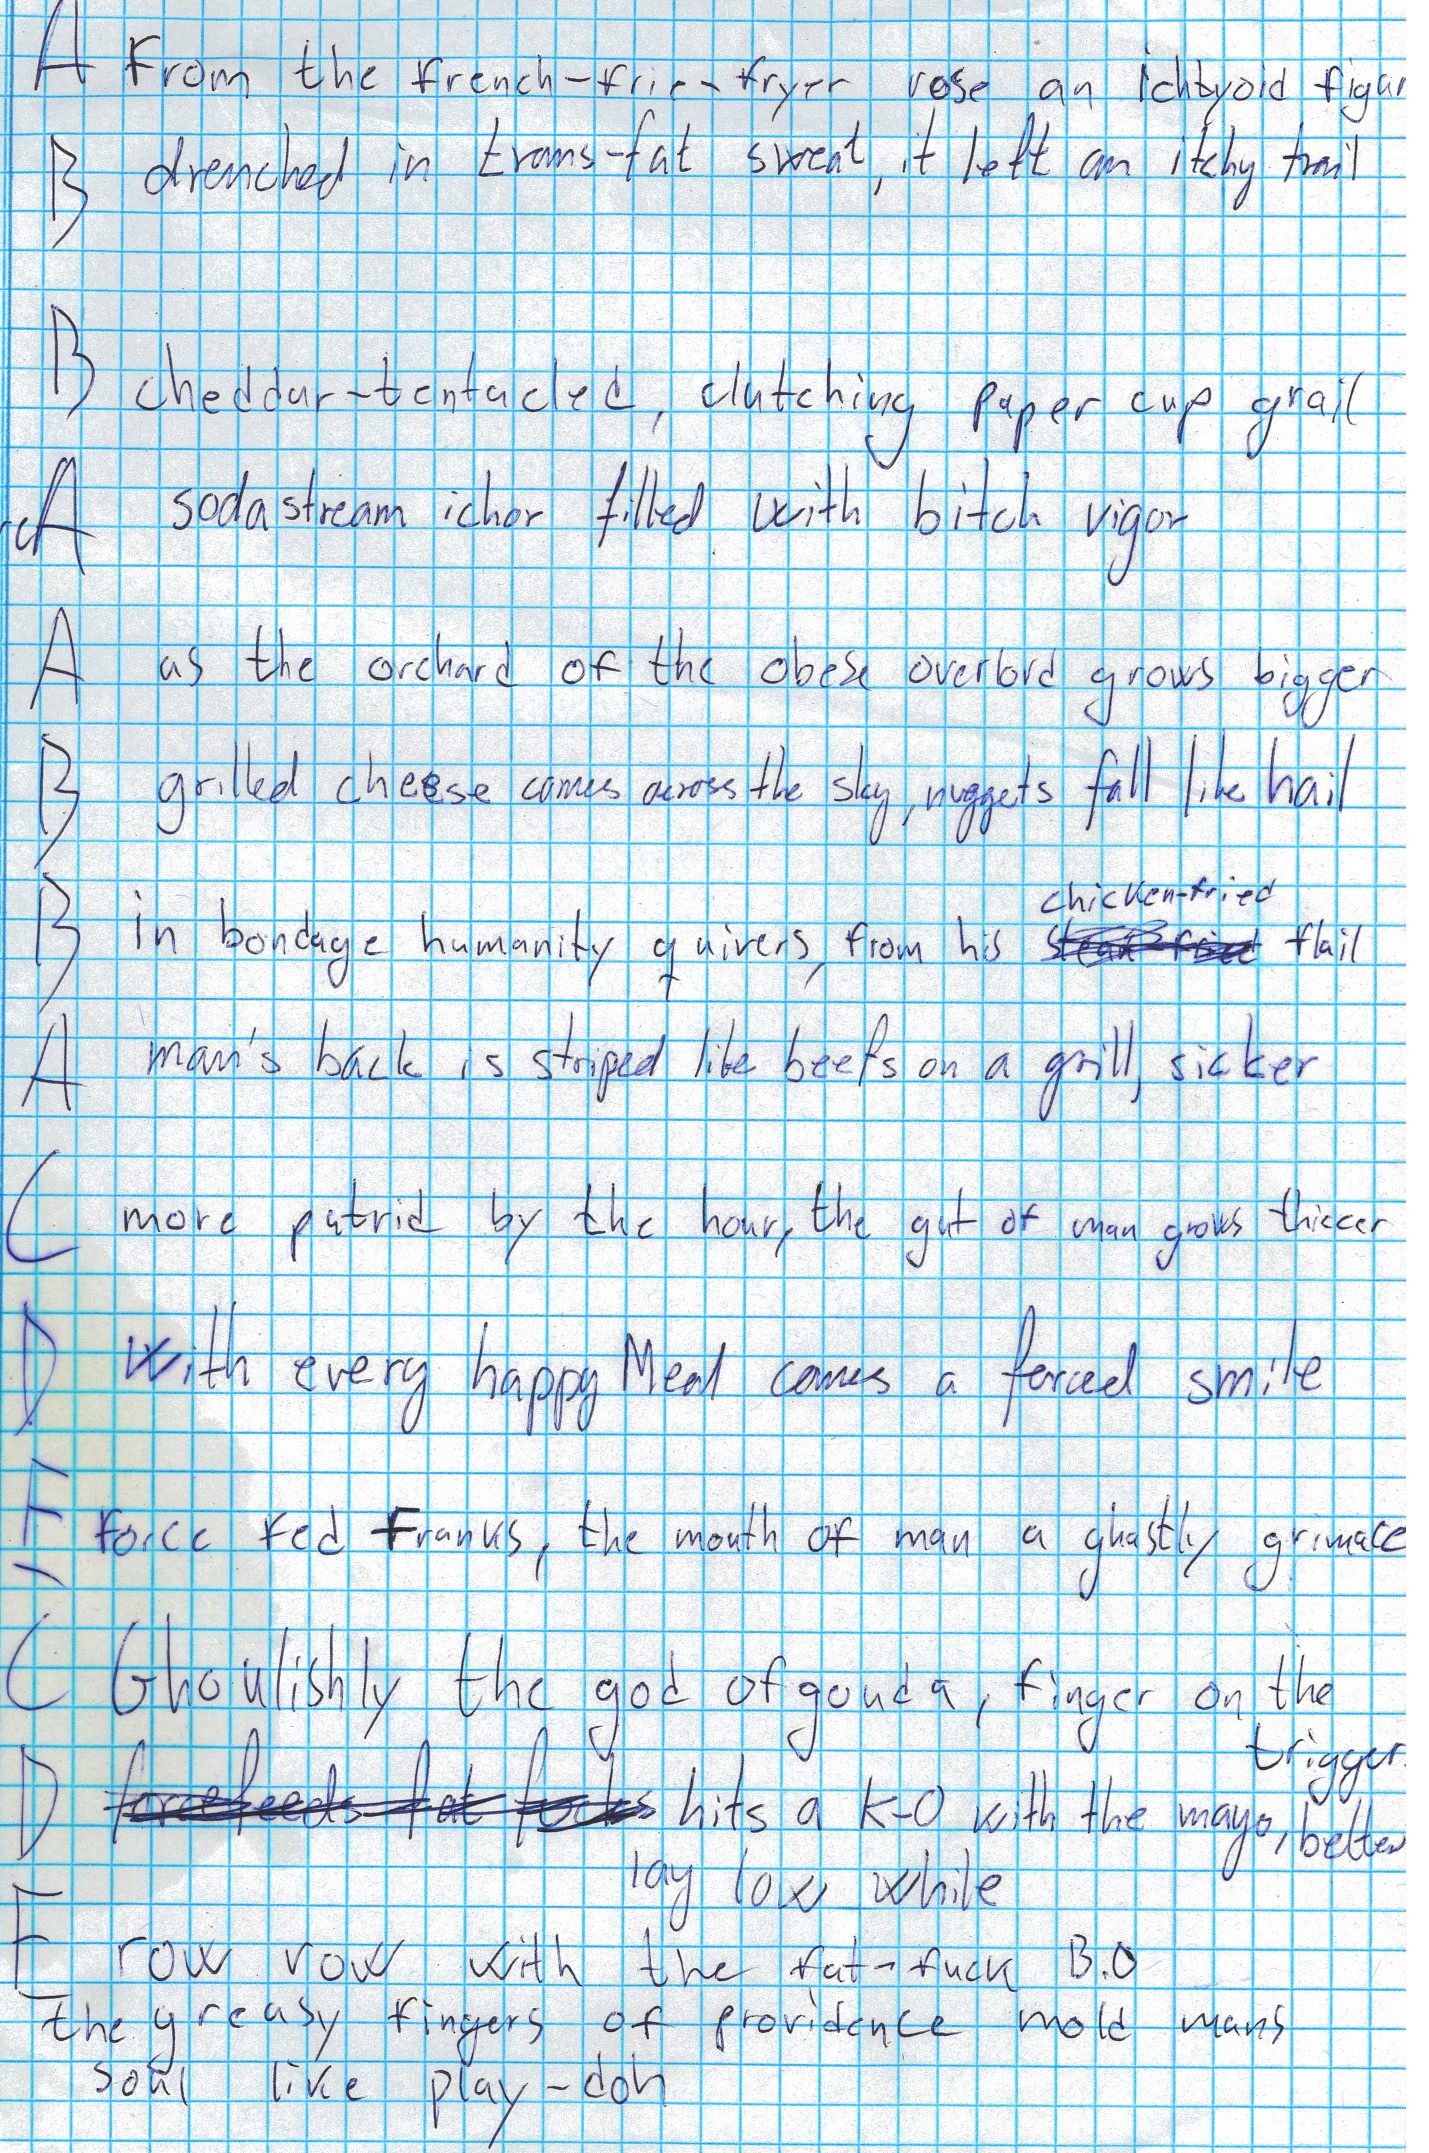 A From the french-frie-fryer rose an ichtyoid figur
B drenched in trans-fat sweat, it left an itchy trail
B cheddar-tentacled, clutching paper cup grail
A sodastream ichor filled with bitch vigor
A as the orchard of the obese overlord grows bigger
B grilled cheese comes across the sky, nuggets fall like hail
chicken-fried
B in bondage humanity quivers, from his flail
A man's back is striped like beefs on a grill, sicker
C more putrid by the hour, the gut of man grows thiccer
D with every happy Meal comes a forced smile
F Force fed Franks, the mouth of man a ghastly grimace
C Ghoulishly the god of gouda, finger on the
trigger
D forcefeeds fat hits a K-O with the mayo, better
lay low while
E row row with the fat-fuck B.O
the greasy fingers of providence mold mans
soul like play-doh